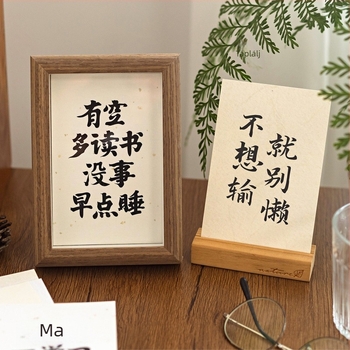 有空
多读书
没事
早点睡
不想输
就别懒
plalj
Ma